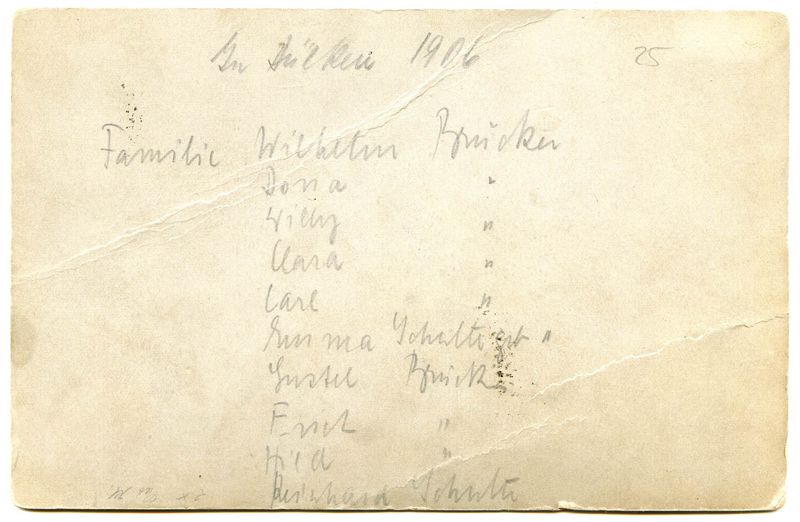 In Dülken 1906 25
Familie Wilhelm Brücker
Dora "
Willy "
Clara "
Carl "
Emma Schulte geb "
Gustel Brücker
Erich "
Hild "
Reinhard Schulte